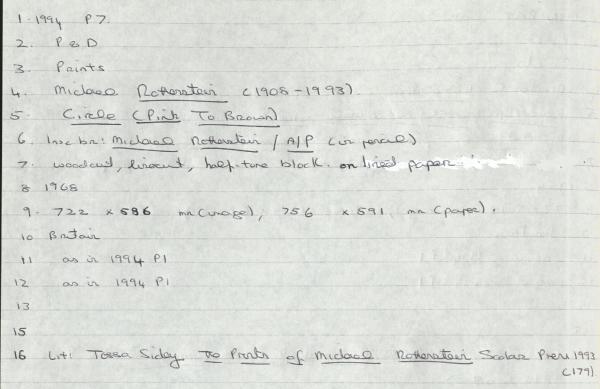 1. 1994 P7.
2. P & D
3. Prints
4. Michael Rothenstein (1908-1993)
5. Circle (Pink To Brown)
6. Insc br: Michael Rothenstein / A/P (in pencil)
7. woodcut, linocut, half-tone block. on lined paper
8 1968
9. 722 x 586 mm (image), 756 x 591 mm (paper).
10 Britain
11 as in 1994 P1
12 as in 1994 P1
13
15
16 Lit: Tessa Sidey The Prints of Michael Rothenstein Scolar Press 1993
(179)